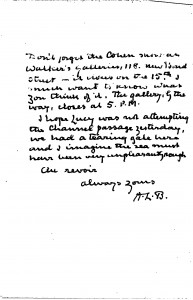 Don't forget the Cohen show at
Walker's Galleries, 118, New Bond
Street – it closes on the 15th I
much want to know what
you think of it. The gallery, by the
way, closes at 5. P.M.
I hope Lucy was not attempting
the Channel passage yesterday,
we had a tearing gale here
and I imagine the sea must
have been very unpleasant rough
Au revoir
always yours
A.L.B.